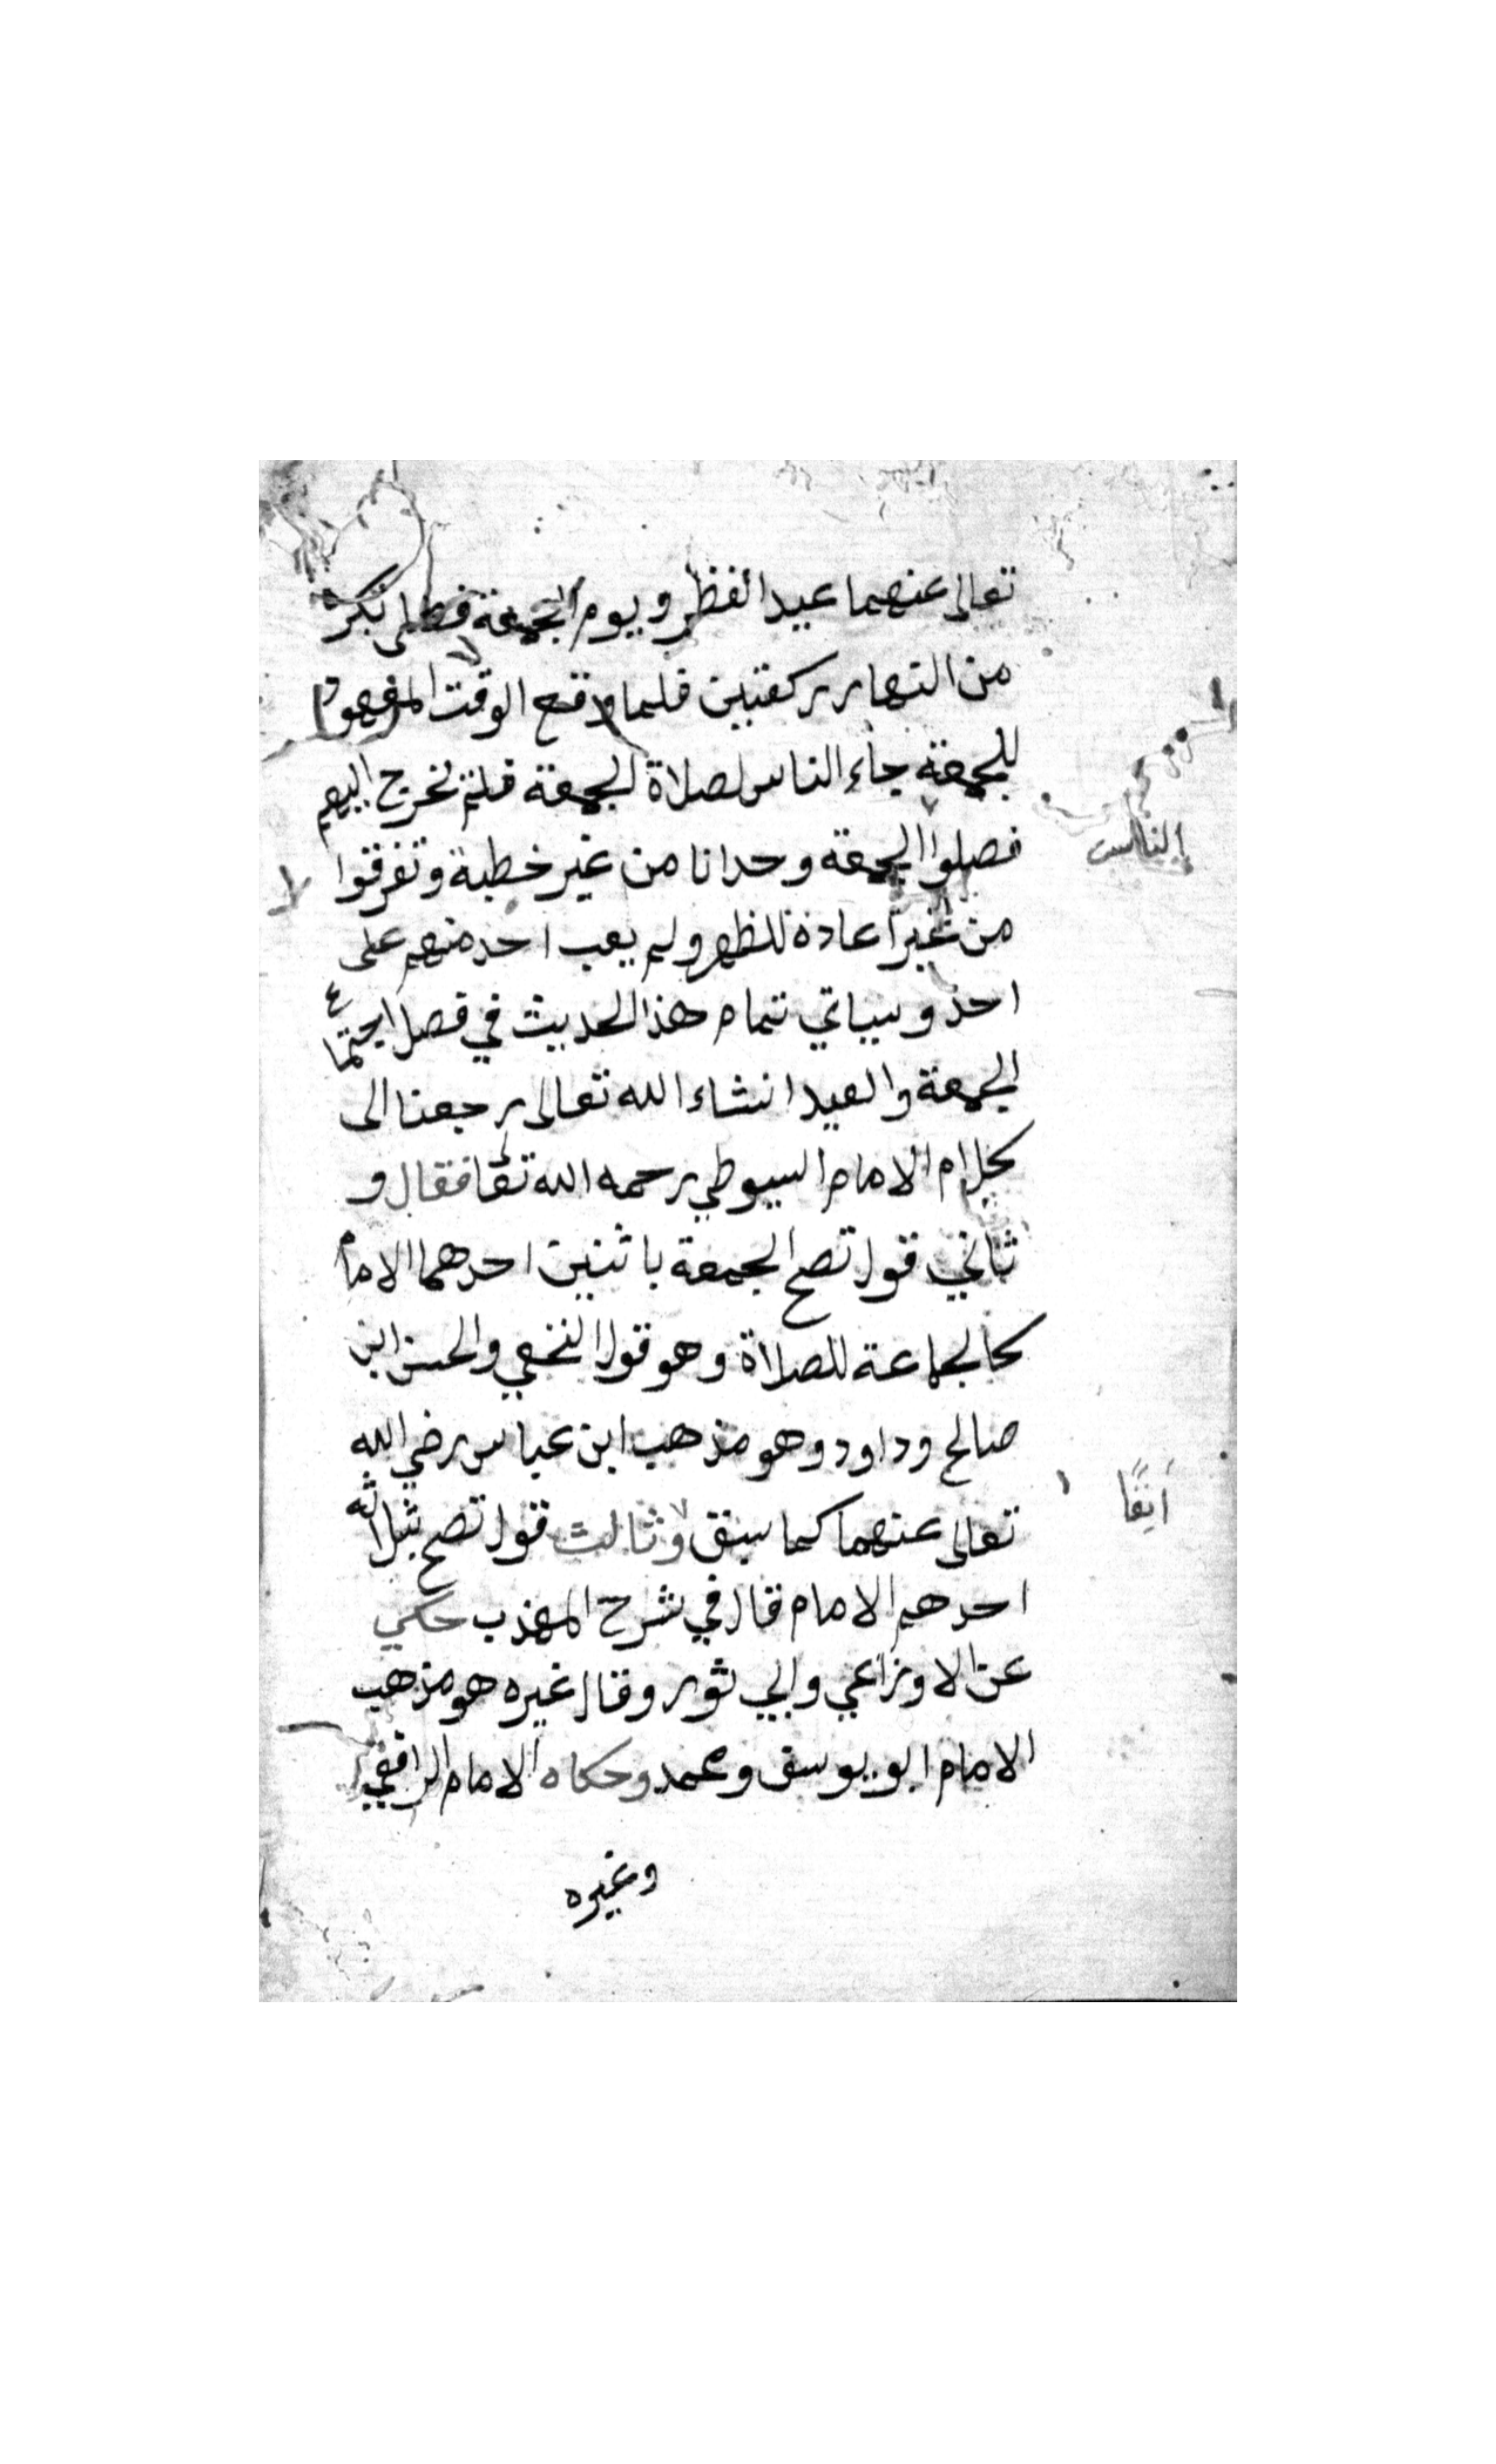 تعالى عنهما عيد الفطر ويوم الجمعة فصلى بكرة
من النهار ركعتين فلما وقع الوقت المعهود
للجمعة جاء الناس لصلاة الجمعة فلم نخرج اليهم
فصلوا الجمعة وحدانا من غير خطبة وتفرقوا
الناس
من غير اعادة للظهر ولم يعب احد منهم على
احد وسياتي تمام هذا الحديث في فصل اجتماع
الجمعة والعيد انشاء الله تعالى رجعنا الى
كلام الامام السيوطي رحمه الله تعا فقال و
ثاني قول تصح الجمعة باثنين احدهما الامام
كالجماعة للصلاة وهو قول النخعي والحسن ابن
صالح وداود وهو مذهب ابن عباس رضي الله
تعالى عنهما كما سبق وثالث قول تصح بثلاثه
آنفًا
احدهم الامام قال في شرح المهذب حكي
عن الاوزاعي وابي ثور وقال غيره هو مذهب
الامام ابو يوسف ومحمد وحكاه الامام الرافعي
وغيره